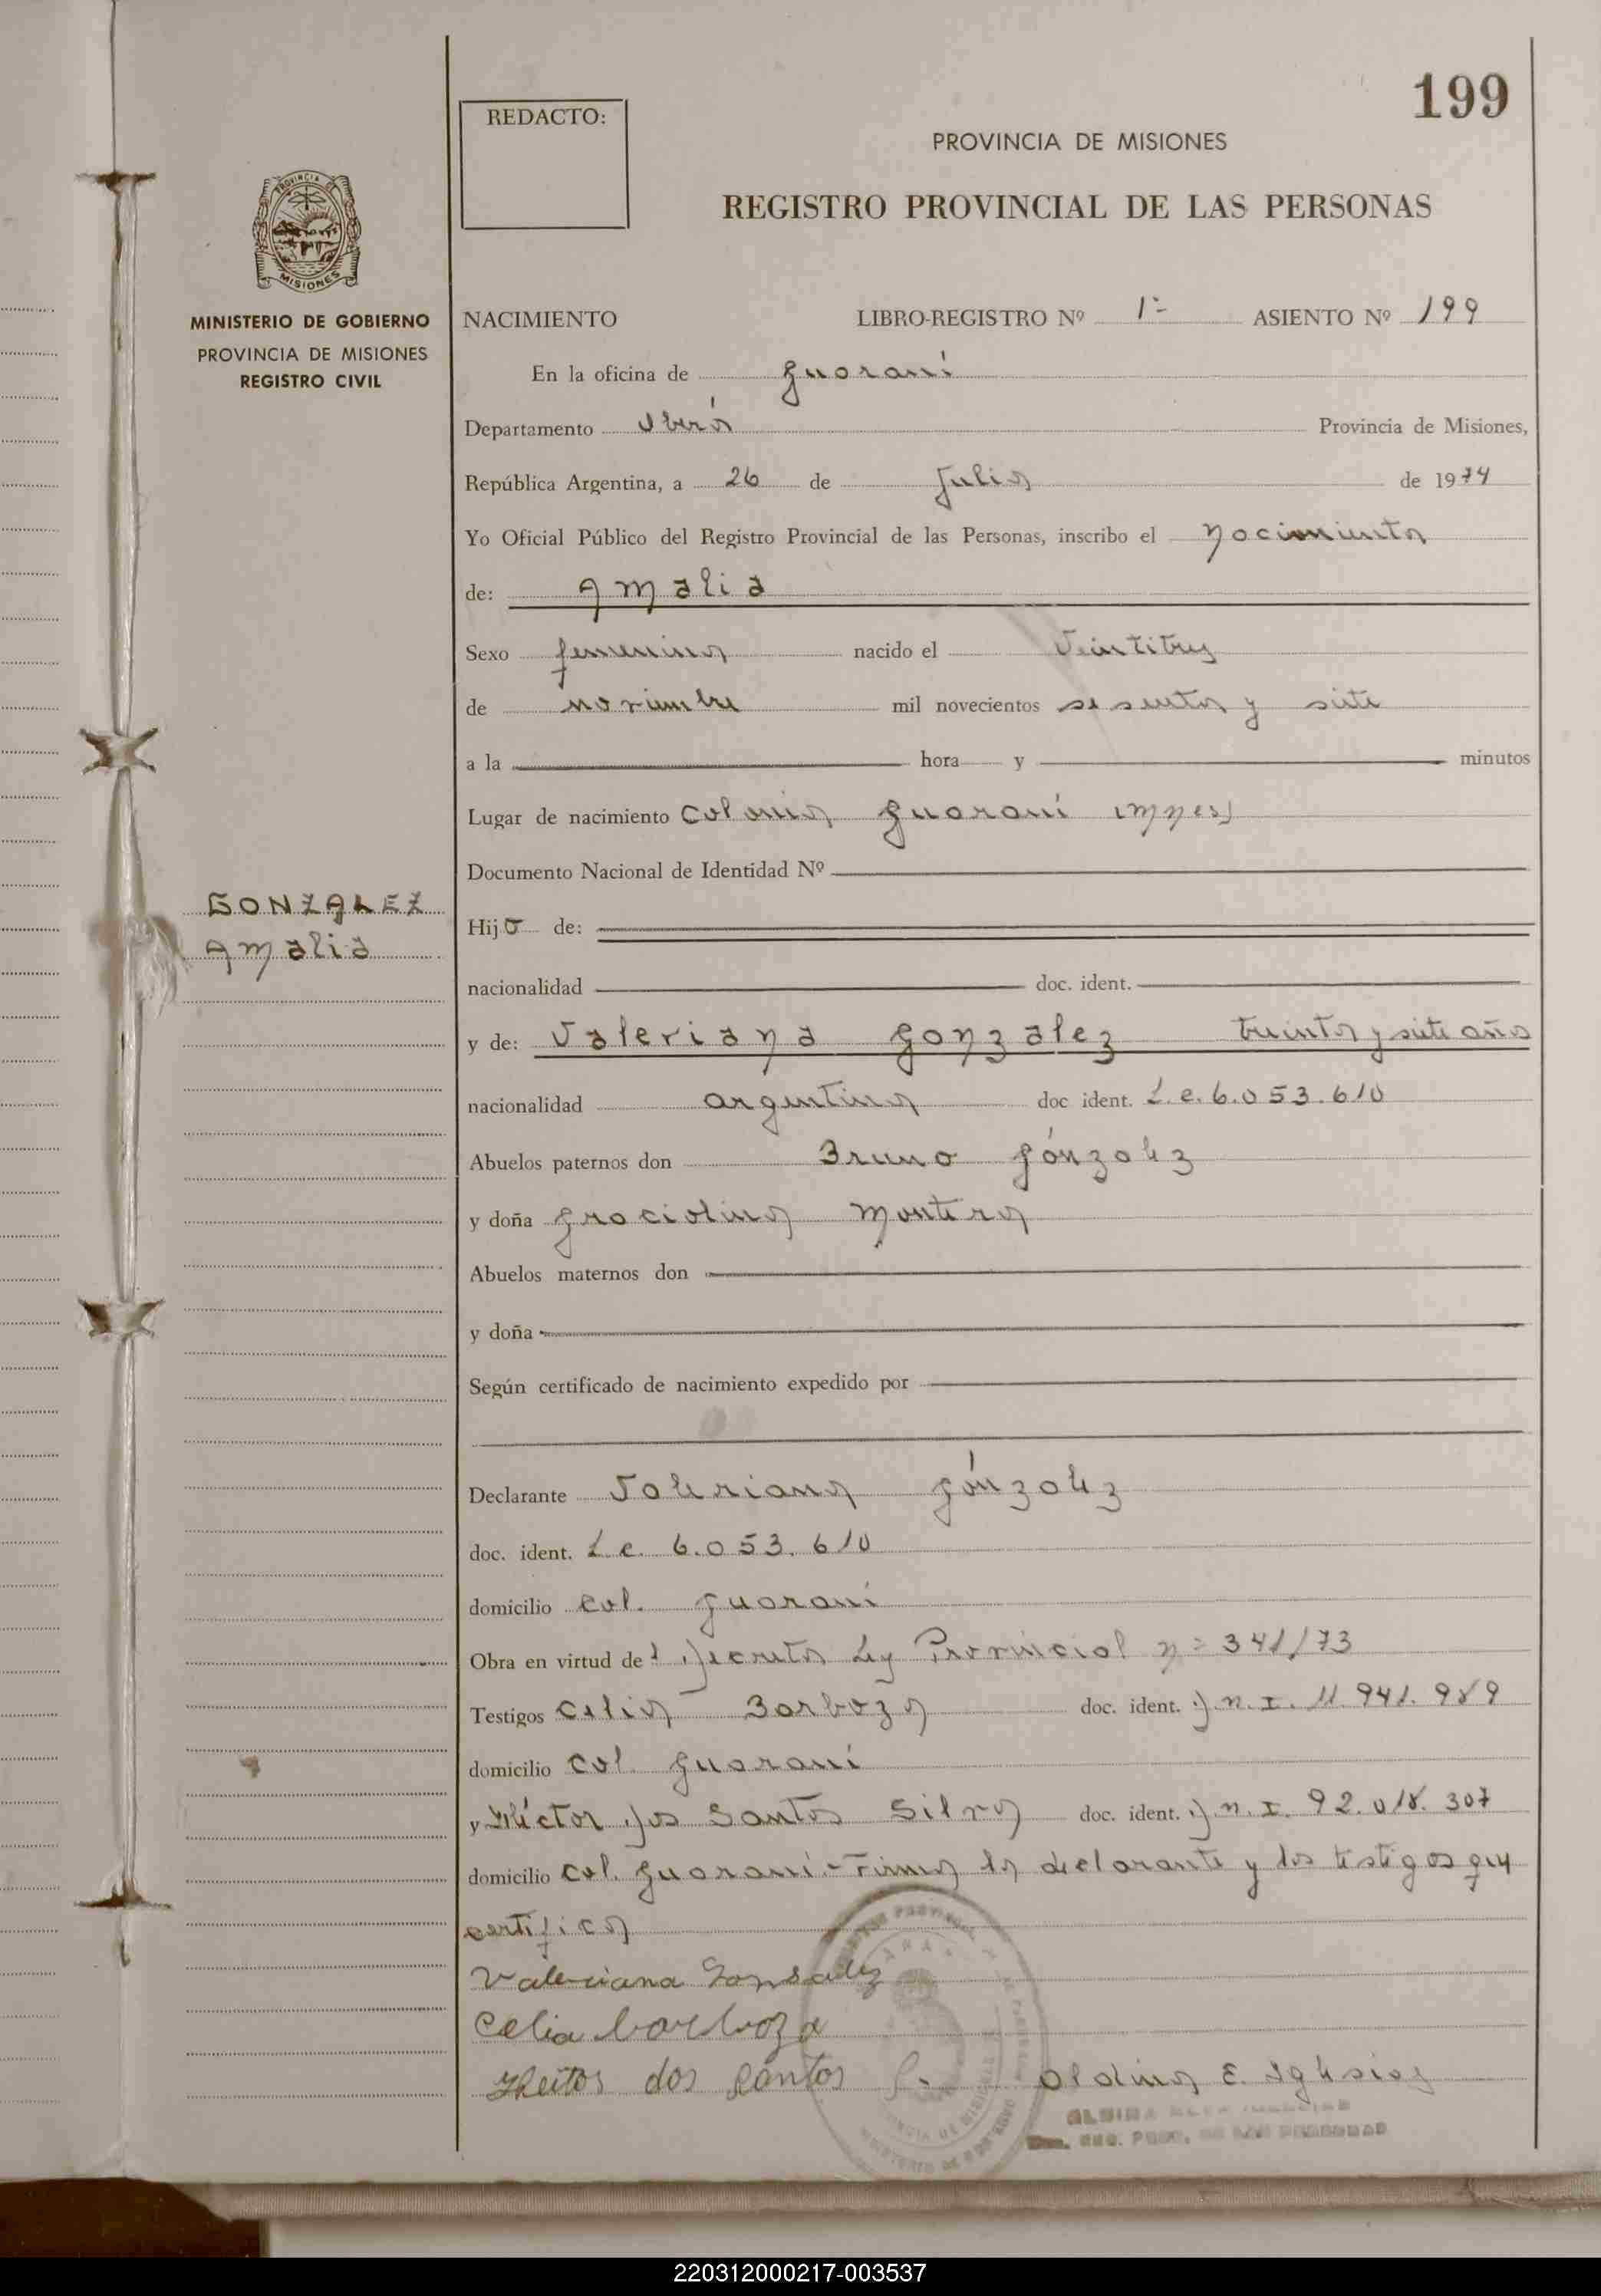 199
REDACTO:
PROVINCIA DE MISIONES
REGISTRO PROVINCIAL DE LAS PERSONAS
PROVINCIA DE
MISIONES
MINISTERIO DE GOBIERNO
PROVINCIA DE MISIONES
REGISTRO CIVIL
NACIMIENTO LIBRO-REGISTRO Nº 1º ASIENTO Nº 199
En la oficina de Guaraní
Departamento Oberá Provincia de Misiones,
República Argentina, a 26 de Julio de 1974
Yo Oficial Público del Registro Provincial de las Personas, inscribo el nacimiento
de: Amalia
Sexo femenino nacido el Veintitres
de noviembre mil novecientos sesenta y siete
a la hora y minutos
Lugar de nacimiento Colonia Guaraní (Mnes)
Documento Nacional de Identidad Nº
GONZALEZ
Amalia
Hija de:
nacionalidad doc. ident.
y de: Valeriana Gonzalez treinta y siete años
nacionalidad argentina doc ident. L.c. 6.053.610
Abuelos paternos don Bruno Gónzalez
y doña Graciolina Montero
Abuelos maternos don
y doña
Según certificado de nacimiento expedido por
Declarante Valeriana Gónzalez
doc. ident. L.c. 6.053.610
domicilio Col. Guaraní
Obra en virtud del Decreto Ley Provincial nº 341/73
Testigos Celia Barboza doc. ident. D.n.I. 11.941.989
domicilio Col. Guaraní
y Héctor Dos Santos Silva doc. ident. D.n.I. 92.018.307
domicilio Col. Guaraní - Firma la declarante y los testigos que
certifico
Valeriana Gonsalez
Celia barboza
Heitos dos Santos S. Aldina E. Iglesias
220312000217-003537